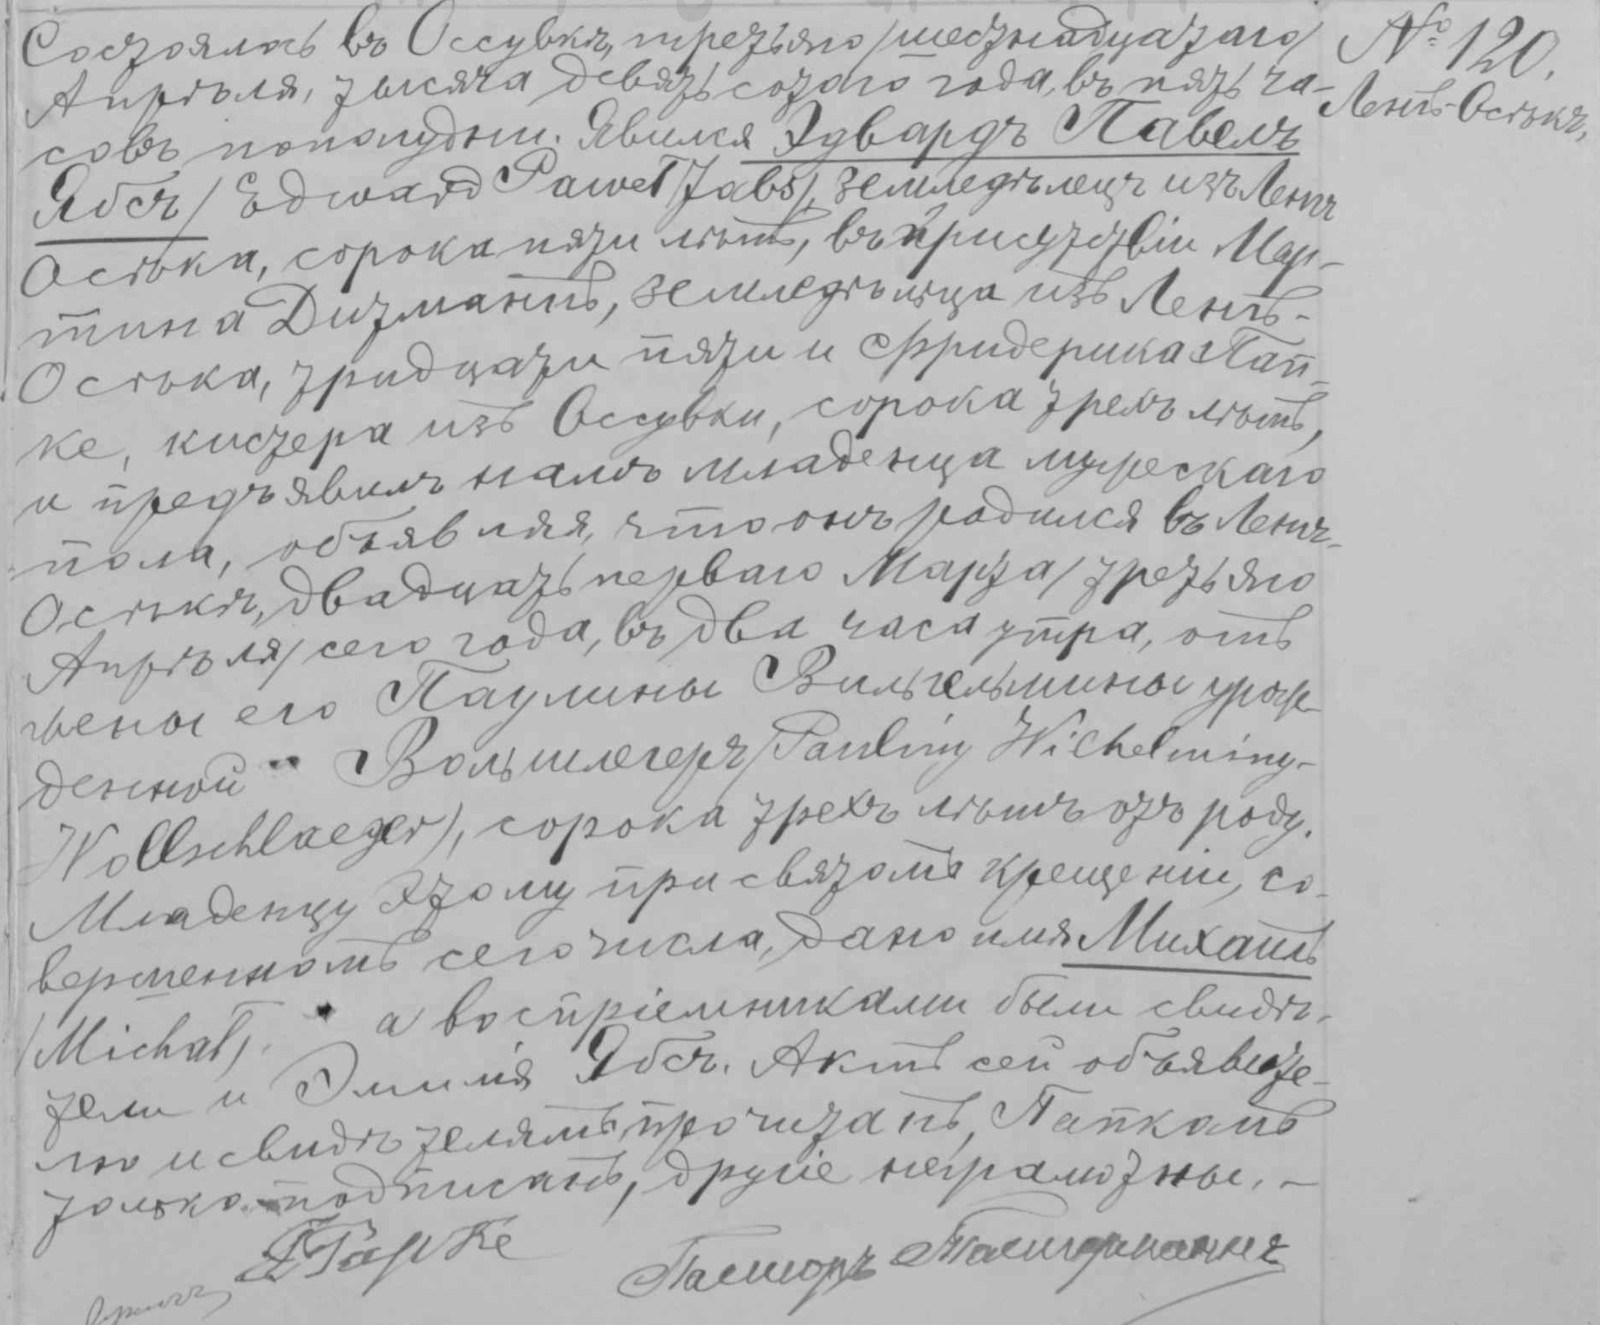 Состоялось въ Оссувкѣ, третьяго /шестнадцатаго/
Апрѣля, тысяча девятьсотаго года, въ пять ча-
совъ пополудни. Явился Эдвардъ Павелъ
Ябсъ /Edward Paweł Jabs/, земледѣлецъ изъ Ленъ
Осѣка, сорока пяти лѣтъ, въ присутствіи Мар-
тина Дитманъ, земледѣльца изъ Ленъ-
Осѣка, тридцати пяти и Фридерика Пап-
ке, кистера изъ Оссувки, сорока трехъ лѣтъ,
и предъявилъ намъ младенца мужескаго
пола, объявляя, что онъ родился въ Ленъ-
Осѣкѣ, двадцать перваго Марта /третьяго
Апрѣля/ сего года, въ два часа утра, отъ
жены его Паулины Вильгельмины урож-
денной Вольшлегеръ /Pauliny Wilhelminy
Wollschlaeger/, сорока трехъ лѣтъ отъ роду.
Младенцу этому при святомъ крещеніи, со-
вершенномъ сего числа, дано имя Михаилъ
/Michał/. а воспріемниками были свидѣ-
тели и Эмилія Ябсъ. Актъ сей объявите-
лю и свидѣтелямъ прочитанъ, Папкомъ
только подписанъ, другіе неграмотны. -
Papke
Пасторъ
№ 120.
Ленъ-Осѣкъ,